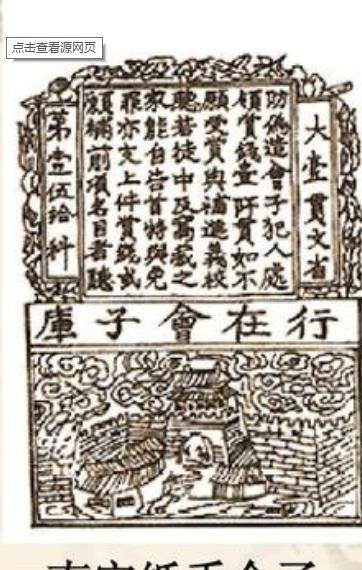 点击查看源网页
大壹貫文省
防偽造會子犯人處
領賞錢壹阡貫如不
願受賞與補進義校
聽若徒中及窩藏之
家能自告首特與免
罪亦支上件賞錢或
願補前項名目者聽
第壹伍拾料
行在會子庫